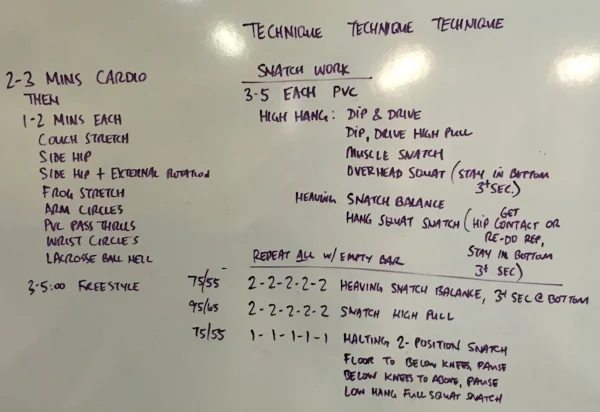 TECHNIQUE TECHNIQUE TECHNIQUE
2-3 MINS CARDIO
THEN
1-2 MINS EACH
COUCH STRETCH
SIDE HIP
SIDE HIP + EXTERNAL ROTATION
FROG STRETCH
ARM CIRCLES
PVC PASS THRUS
WRIST CIRCLES
LACROSSE BALL HELL
3-5:00 FREESTYLE
SNATCH WORK
3-5 EACH PVC
HIGH HANG: DIP & DRIVE
DIP, DRIVE HIGH PULL
MUSCLE SNATCH
OVERHEAD SQUAT (STAY IN BOTTOM
3+ SEC.)
HEAVING SNATCH BALANCE
HANG SQUAT SNATCH (GET
HIP CONTACT OR
RE-DO REP,
STAY IN BOTTOM
3+ SEC)
REPEAT ALL W/ EMPTY BAR
75/55 2-2-2-2-2 HEAVING SNATCH BALANCE, 3+ SEC @ BOTTOM
95/65 2-2-2-2-2 SNATCH HIGH PULL
75/55 1-1-1-1-1 HALTING 2-POSITION SNATCH
FLOOR TO BELOW KNEES, PAUSE
BELOW KNEES TO ABOVE, PAUSE
LOW HANG FULL SQUAT SNATCH